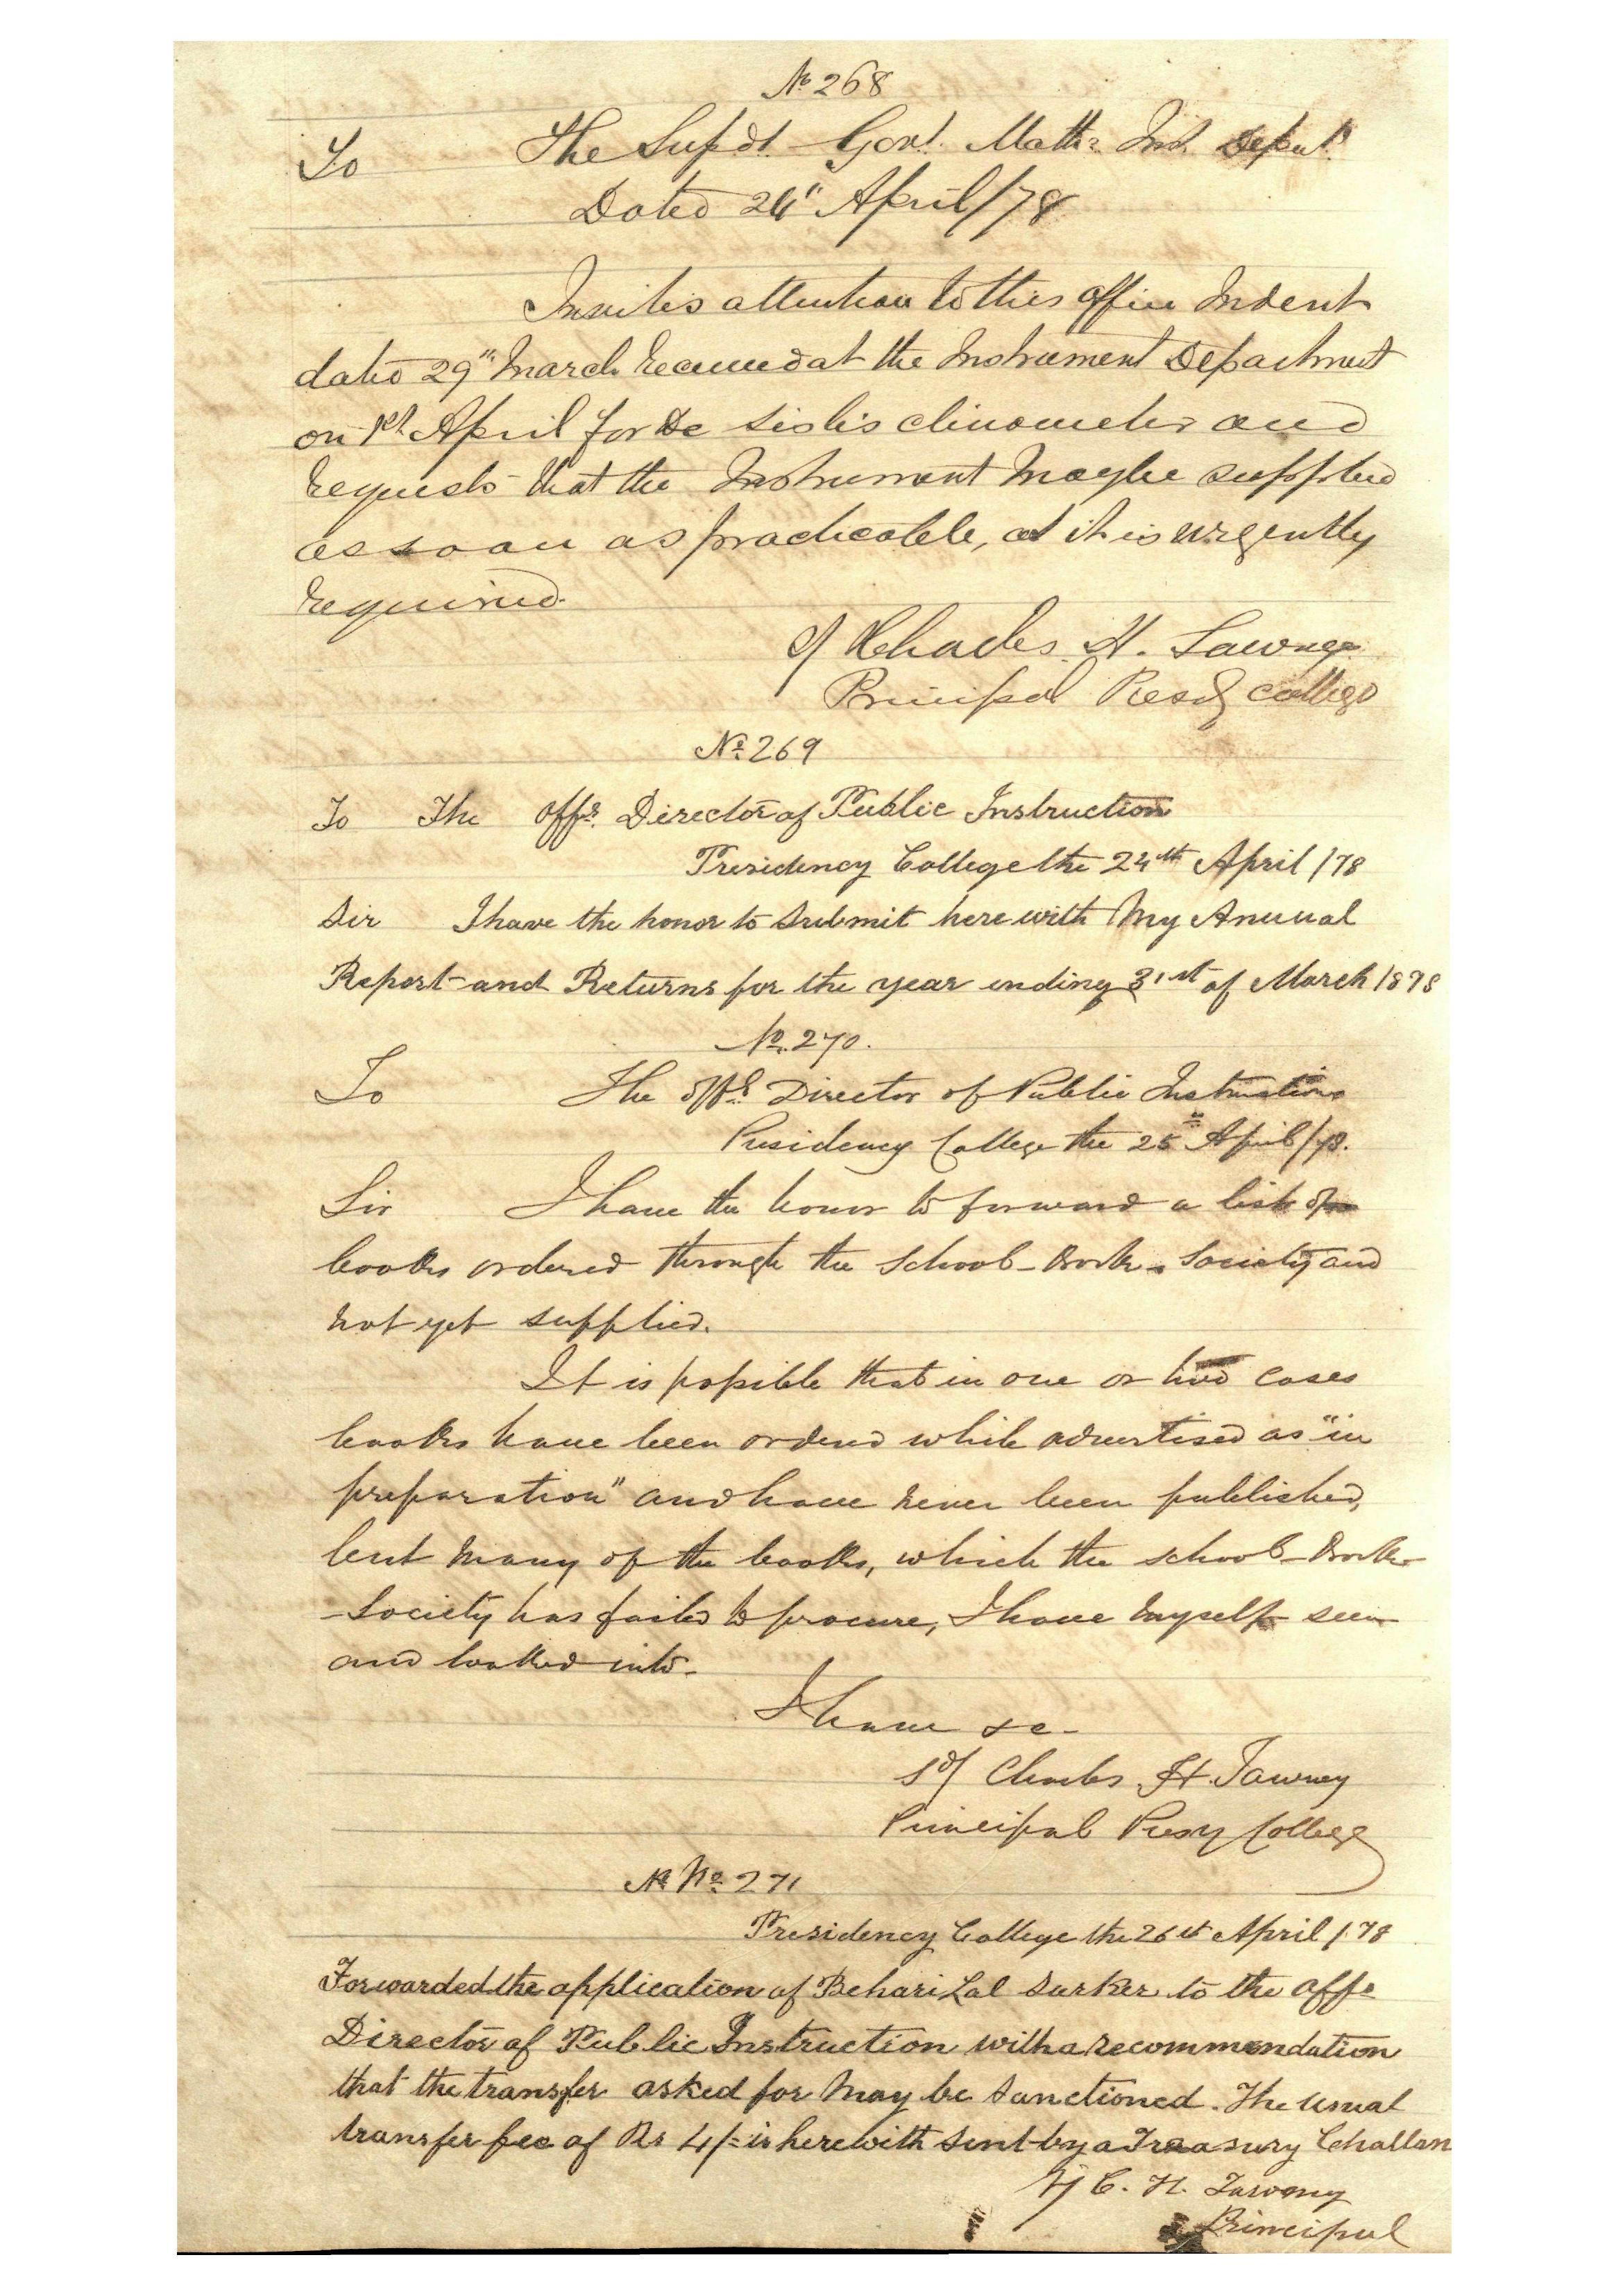 No 268
To The Supdt. Govt. Math: Inst. Depat.
Dated 24" April/78
Invites attention to this office Indent
dated 29th March received at the Instrument Department
on 1st April for De clinometer and
requests that the Instrument may be supplied
as soon as practicable, as it is urgently
required.
Sd/ Charles H. Tawney
Principal Presdy College
No. 269
To The Offg. Director of Public Instruction
Presidency College the 24th April /78
Sir I have the honor to submit herewith My Annual
Report and Returns for the year ending 31st of March 1878
No. 270.
To The offg. Director of Public Instruction
Presidency College the 25th April/78.
Sir I have the honor to forward a list of
books ordered through the School-Book-Society and
not yet supplied.
It is possible that in one or two cases
books have been ordered while advertised as "in
preparation" and have never been published,
but many of the books, which the School-Book
-Society has failed to procure, I have myself seen
and looked into.
I have &c-
Sd/ Charles H. Tawney
Principal Presy College
No. 271
Presidency College the 26th April /78
Forwarded the application of Behari Lal Surker to the Offg.
Director of Public Instruction with a recommendation
that the transfer asked for may be sanctioned. The usual
transfer fee of Rs 4/- is herewith sent by a Treasury Challan
Sd/ C. H. Tawney
Principal